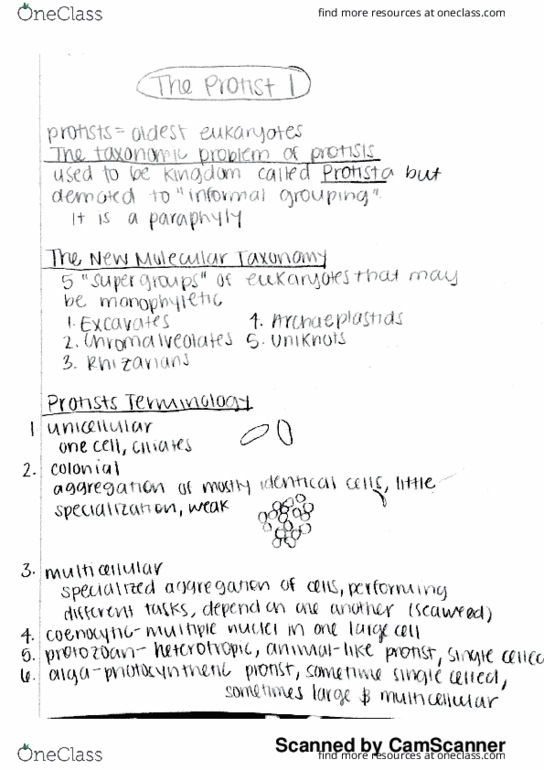 OneClass
find more resources at oneclass.com
The Protist 1
protists = oldest eukaryotes
The taxonomic problem of protists
used to be kingdom called Protista but
demoted to "informal grouping"
it is a paraphyly
The New Molecular Taxonomy
5 "supergroups" of eukaryotes that may
be monophyletic
1. Excavates 4. Archaeplastids
2. Chromalveolates 5. Uniknots
3. Rhizarians
Protists Terminology
1 unicellular
one cell, ciliates
2. colonial
aggregation of mostly identical cells, little
specialization, weak
3. multicellular
specialized aggregation of cells, performing
different tasks, depend on one another (seaweed)
4. coenocytic- multiple nuclei in one large cell
5. protozoan- heterotropic, animal-like protist, single celled
6. alga- photosynthetic protist, sometime single celled,
sometimes large & multicellular
Scanned by CamScanner
OneClass
find more resources at oneclass.com